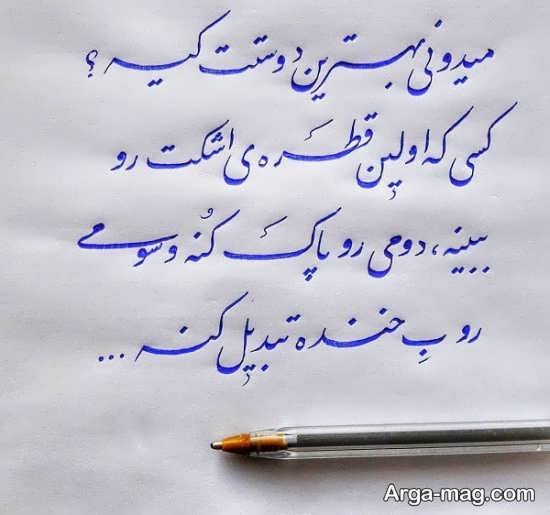 میدونی بهترین دوستت کیه ؟
کسی که اولین قطره ی اشکت رو
ببینه، دومی رو پاک کُنه و سومی
رو بِ خنده تبدیل کنه ...
Arga-mag.com